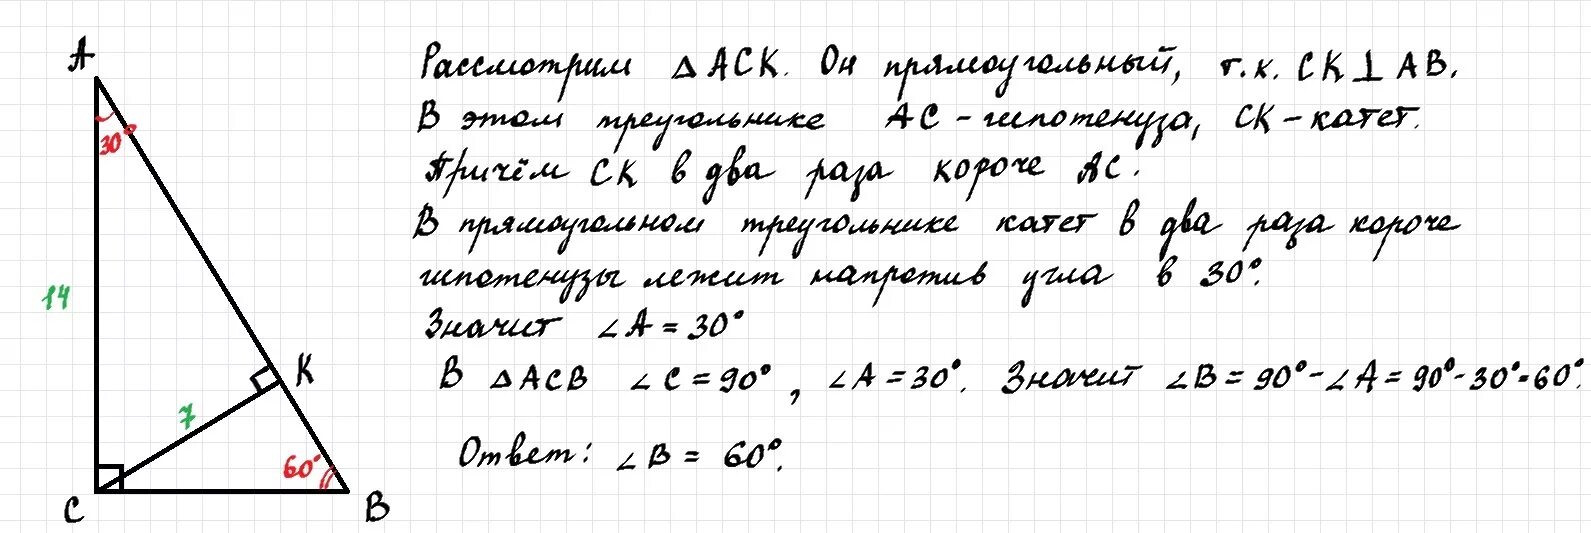 A
30°
14
7
K
60°
C
B
Рассмотрим △ACK. Он прямоугольный, т.к. CK⊥AB.
В этом треугольнике AC - гипотенуза, CK - катет.
Причём CK в два раза короче AC.
В прямоугольном треугольнике катет в два раза короче
гипотенузы лежит напротив угла в 30°.
Значит ∠A = 30°
В △ACB ∠C = 90°, ∠A = 30°. Значит ∠B = 90° - ∠A = 90° - 30° = 60°.
Ответ: ∠B = 60°.